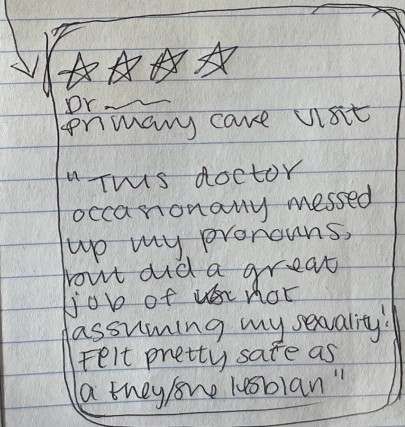 Dr.
primary care visit
"This doctor
occasionally messed
up my pronouns,
but did a great
job of not
assuming my sexuality!
Felt pretty safe as
a they/she lesbian"